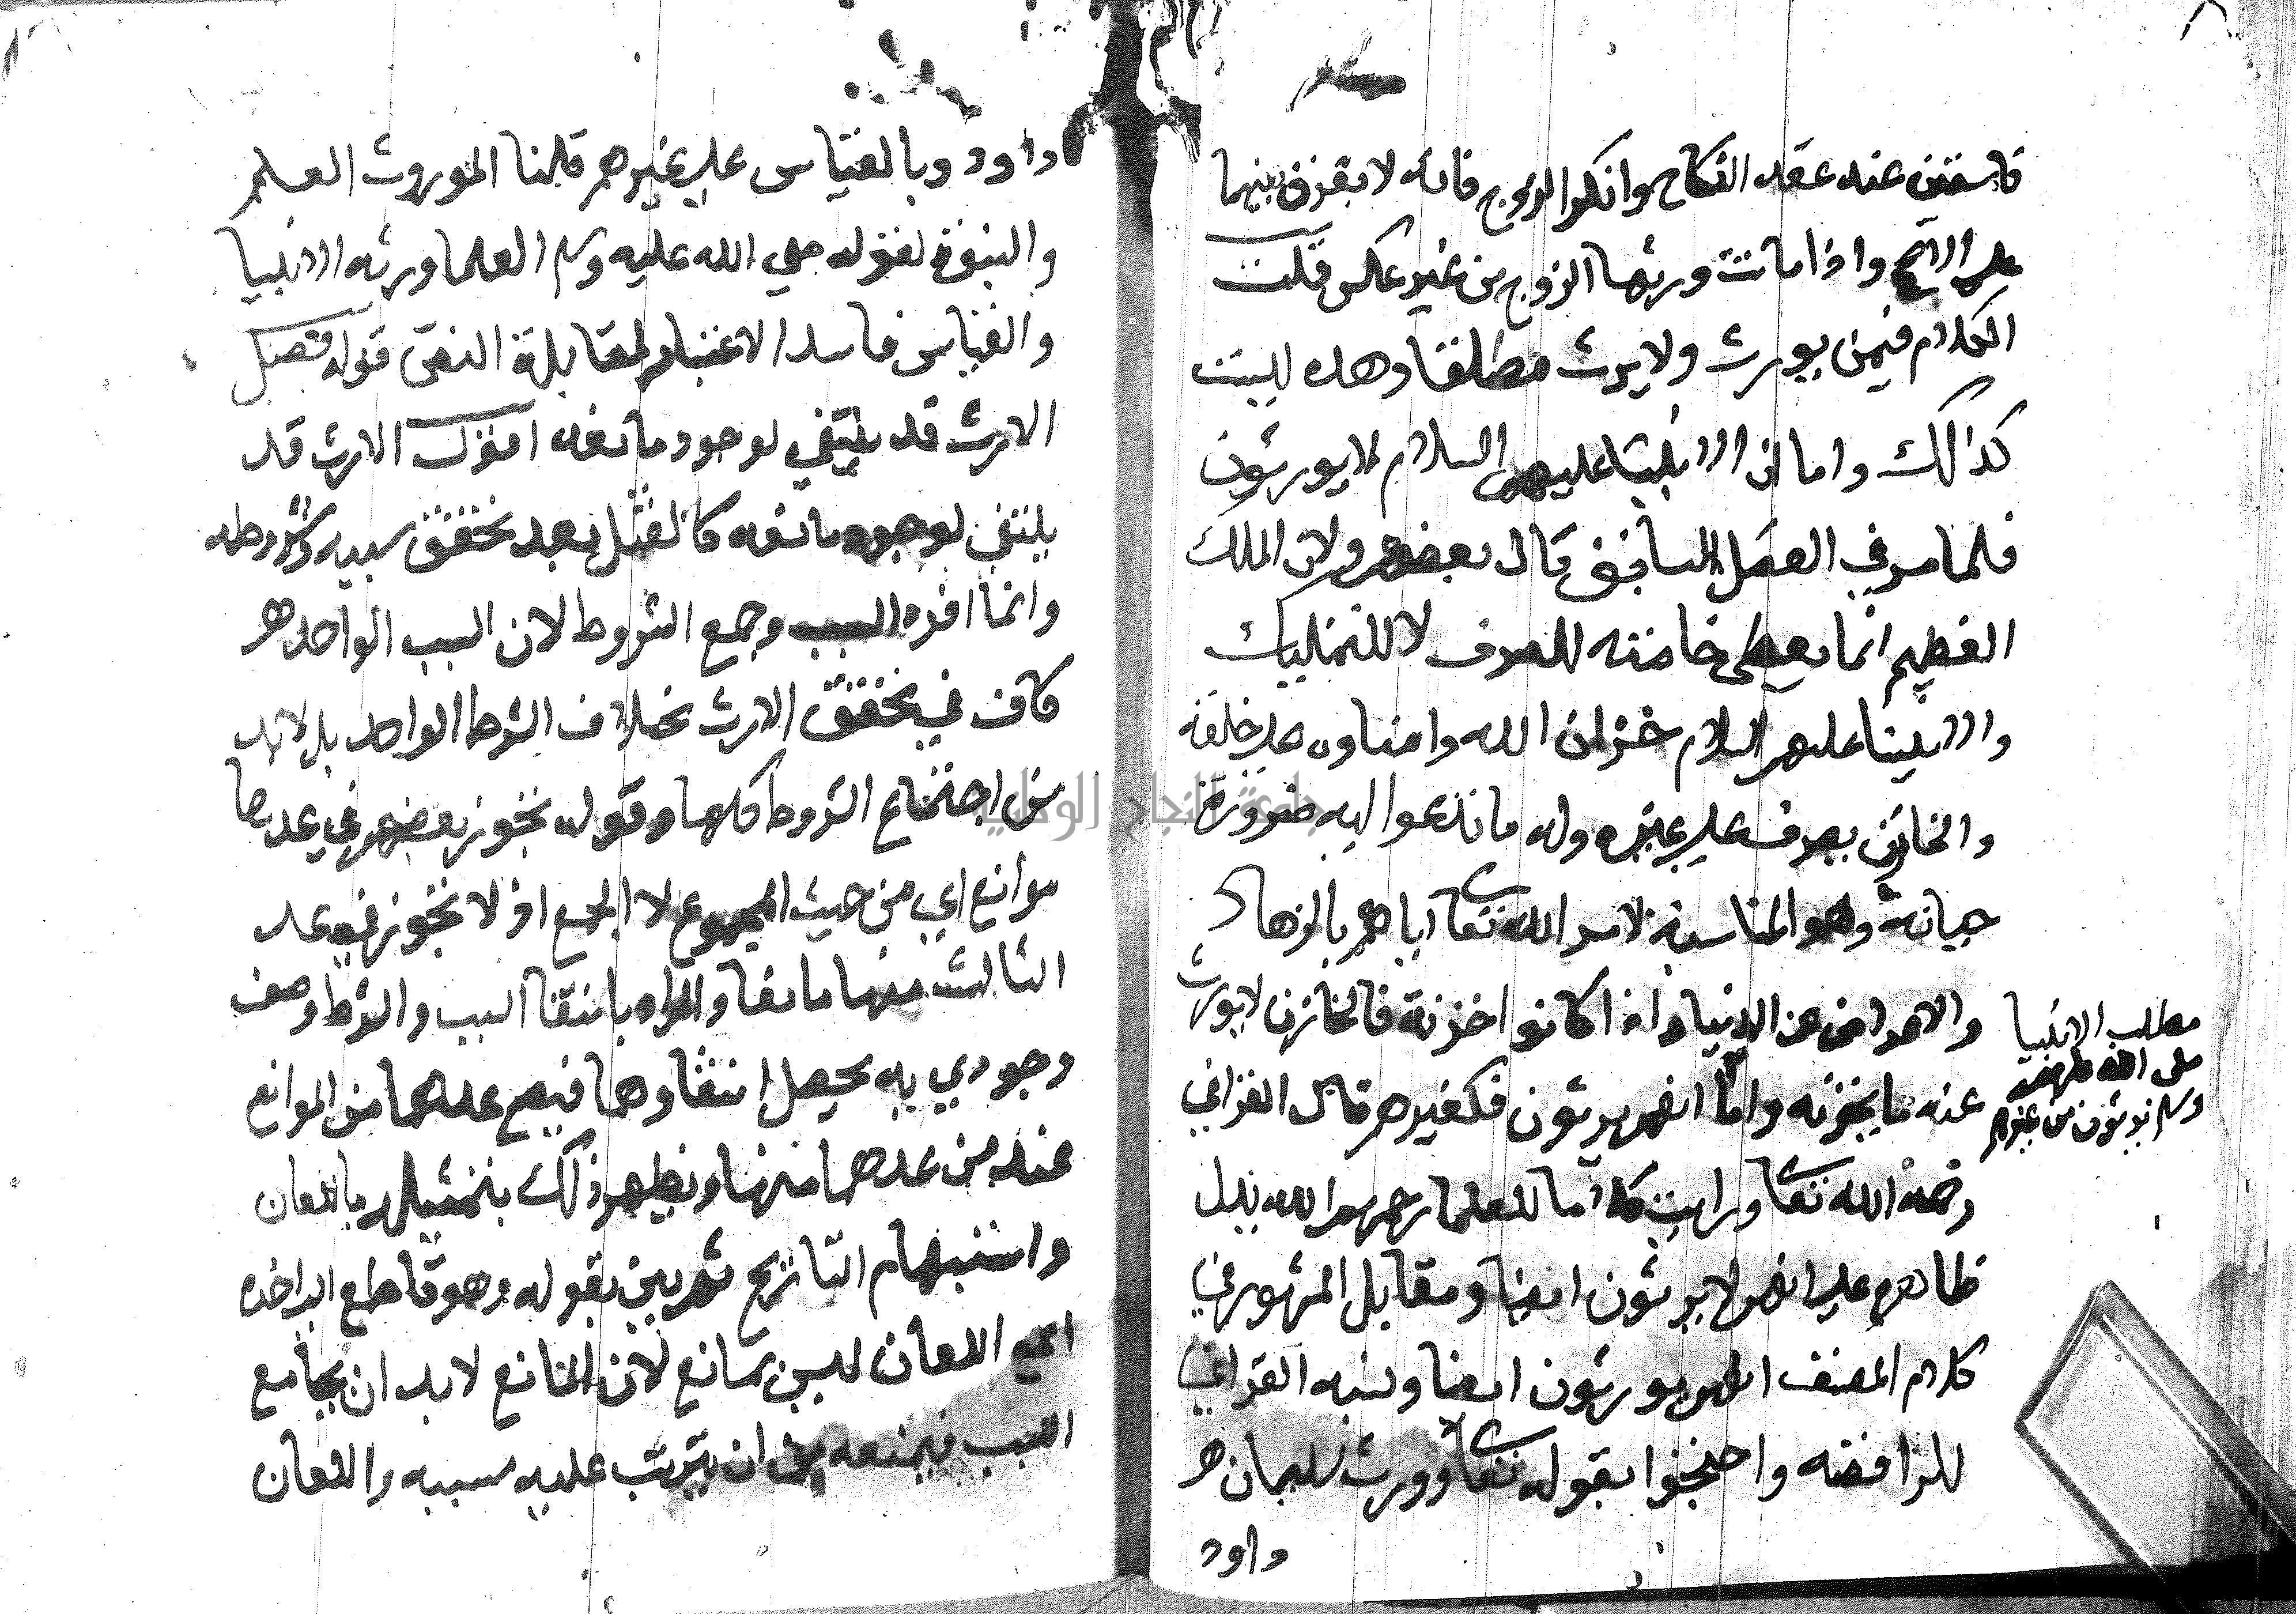 فاسقين عنه عقد النكاح وانكر الزوج فانه لا يفرق بينهما
على الاصح واذا ماتت ورثها الزوج من غير عكس قلت
الكلام فيمن يورث ولا يرث مطلقا وهذه ليست
كذالك واما ان الانبيا عليهم السلام لا يورثون
فلما مر في الفصل السابق قال بعضهم ولان الملك
العظيم انما يعطى خاصته للصرف لا للتمليك
والانبيا عليهم السلام خزان الله وامناوه على خلقه
والخازن يصرف على غيره وله ما تدعوا اليه ضرورة
حياته وهو المناسبة لامر الله تعالى اياهم بالزهاد
والاعراض عن الدنيا واذا كانوا خزنة فالخازن لا يورث
عنه ما يخزنه واما انهم يرثون فكغيرهم قال القرافي
رحمه الله تعالى ورايت كلاما للعلما رحمهم الله يدل
ظاهره على انهم لا يرثون ايضا ومقابل المشهور في
كلام المصنف انهم يورثون ايضا ونسبه القرافي
للرافضه واحتجوا بقوله تعالى وورث سليمان
داود
مطلب الانبيا
صلى الله عليهم
وسلم يرثون من غيرهم
داود وبالقياس على غيرهم قلنا الموروث العلم
والنبوة لقوله صلي الله عليه وسلم العلما ورثه الانبيا
والقياس فاسد الاعتبار لمقابلة النص قوله فصل
الارث قد ينتفي لوجود مانعه اقول الارث قد
ينتفي لوجود مانعه كالقتل بعد تحقق سببه وشروطه
وانما افرد السبب وجمع الشروط لان السبب الواحد
كاف في تحقق الارث بخلاف الشرط الواحد بل لابد
من اجتماع الشروط كلها وقوله تجوز بعضهم في عدها
موانع اي من حيث المجموع لا الجمع اذ لا تجوز في عد
الثالث منها مانعا والمراد بانتفا السبب والشرط وصف
وجودي به يحصل انتفاوهما فيصح عدهما من الموانع
عند من عدهما منها ويظهر ذلك بتمثيله باللعان
واستبهام التاريخ ثم بين بقوله وهو قاطع الى اخره
اي اللعان ليس بمانع لان المانع لابد ان يجامع
السبب فيمنعه من ان يترتب عليه مسببه واللعان
جامعة النجاح الوطنية